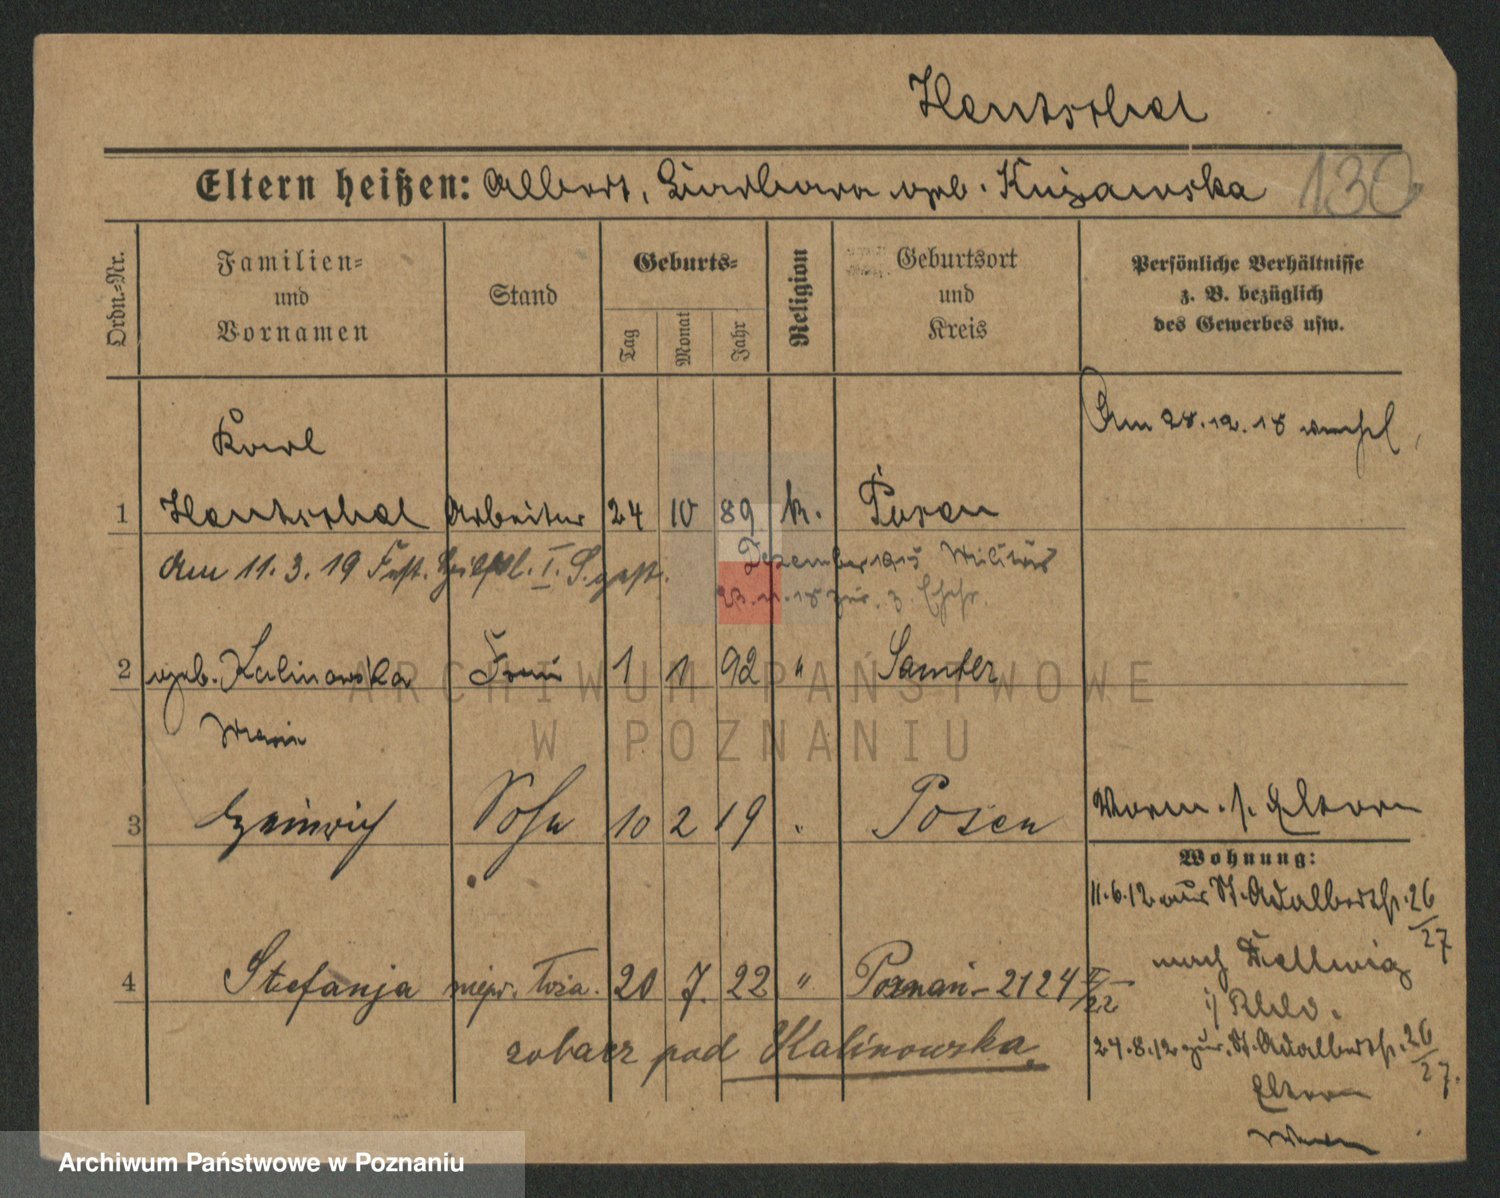 Hentschel
Eltern heißen: Albert, Barbara geb. Kujawska 130
Ordn.-Nr.
Familien-
und
Vornamen
Stand
Geburts-
Tag
Monat
Jahr
Religion
Geburtsort
und
Kreis
Persönliche Verhältnisse
z. B. bezüglich
des Gewerbes usw.
Am 28.12.18
Karl
1 Hentschel Arbeiter 24 10 89 k. Posen
Am 11.3.19
Dezember 1915 Militär
23.11.18 zur. z. Ehefr.
2 geb. Kalinowska Frau 1 1 92 " Samter
Marie
3 Heinrich Sohn 10 2 19 " Posen
Vorm. s. Eltern
Wohnung:
11.6.12 aus St. Adalbertstr. 26/27
nach Dellwig
4 Stefanja niepr. Toza. 20 7. 22 " Poznań - 2124 V/22
i/ Rhld.
zobacz pod Kalinowska
24.8.12 zur. St. Adalbertstr. 26/27.
Eltern
ARCHIWUM PAŃSTWOWE
W POZNANIU
Archiwum Państwowe w Poznaniu